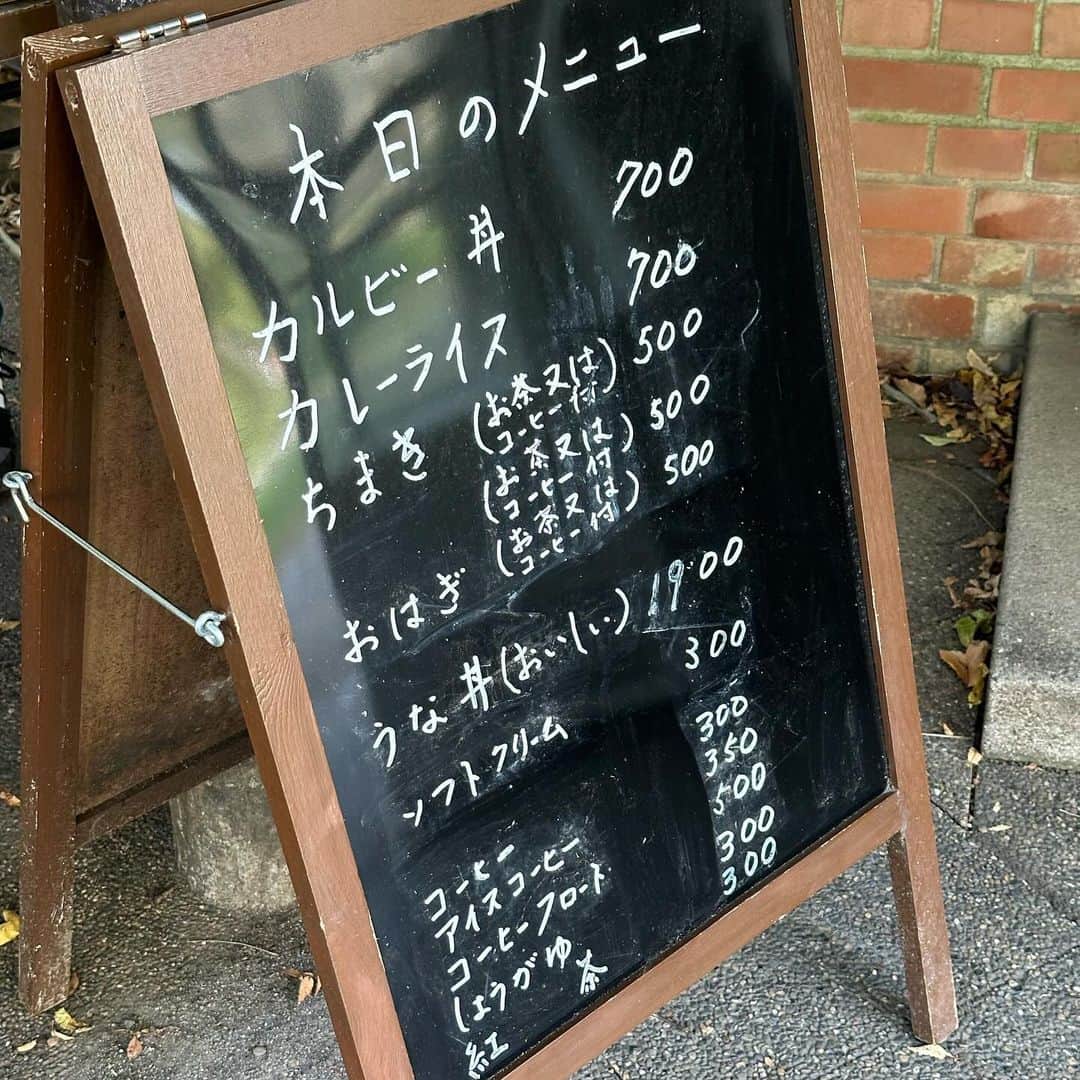 本日のメニュー
カルビー丼 700
カレーライス 700
ちまき (お茶又はコーヒー付) 500
(お茶又はコーヒー付) 500
おはぎ (お茶又はコーヒー付) 500
うな丼(おいしい) 1900
ソフトクリーム 300
コーヒー 300
アイスコーヒー 350
コーヒーフロート 500
しょうがゆ 300
紅茶 300